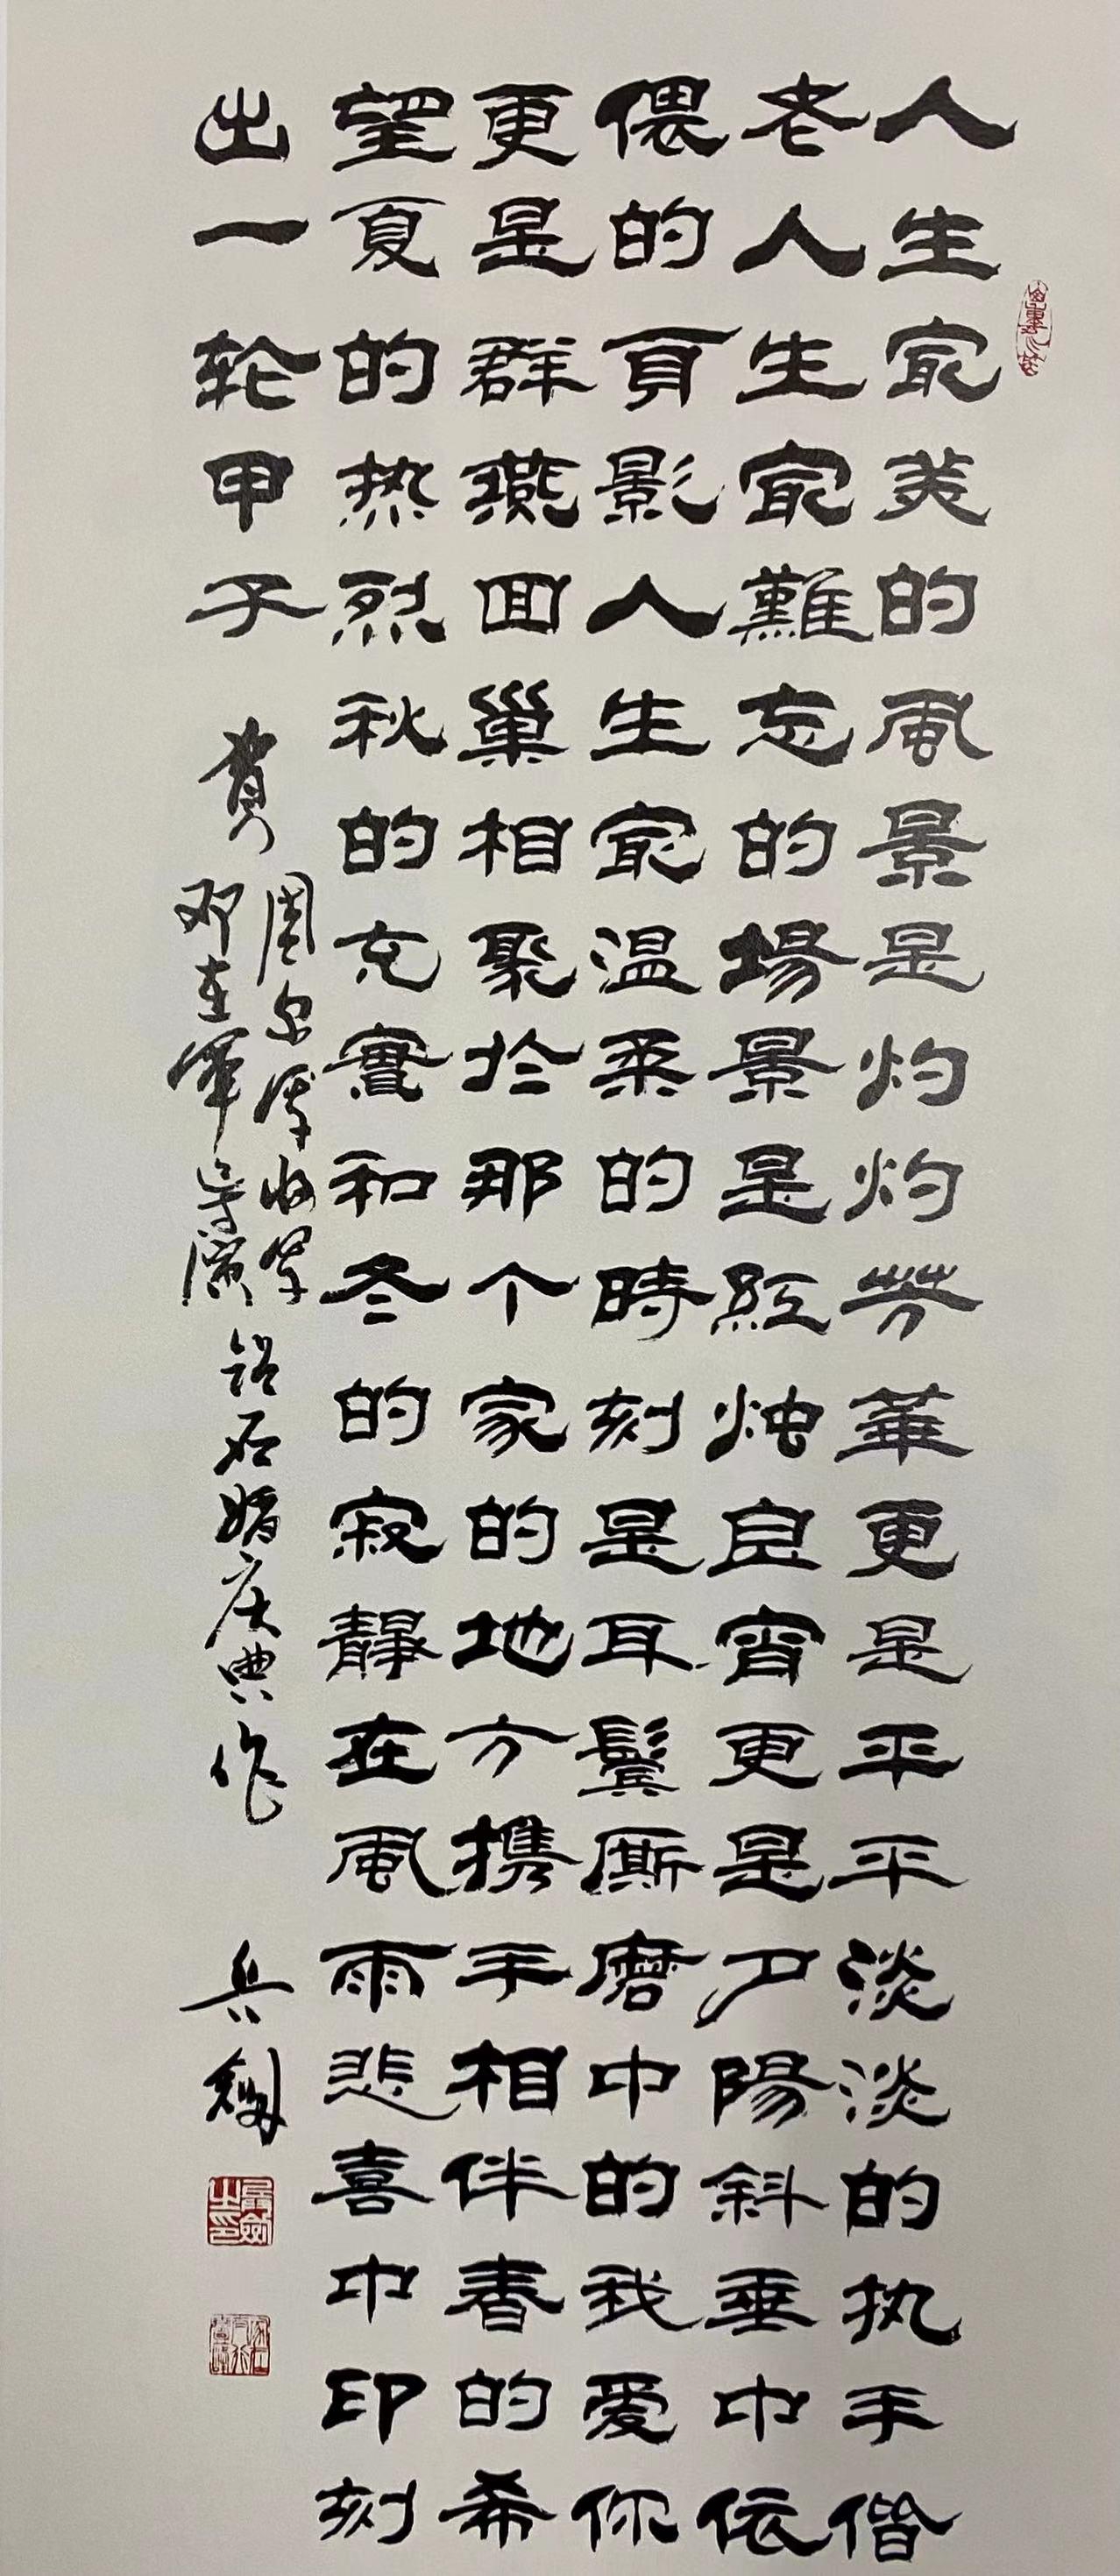 人生冣美的風景是灼灼芳華更是平平淡淡的执手偕
老人生冣難忘的場景是紅烛良宵更是夕陽斜垂中依
偎的肩影人生冣温柔的時刻是耳鬓厮磨中的我爱你
更是群燕回巢相聚於那个家的地方携手相伴春的希
望夏的热烈秋的充實和冬的寂靜在風雨悲喜中印刻
出一轮甲子 贺
周尔均将军
邓在军导演
钻石婚庆典作 兵劍